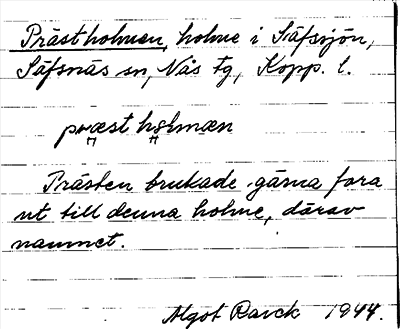 Prästholmen, holme i Säfssjön,
Säfsnäs sn, Nås tg, Kopp. l.
præst holmæn
Prästen brukade gärna fara
ut till denna holme, därav
namnet.
Algot Ravck 1944.